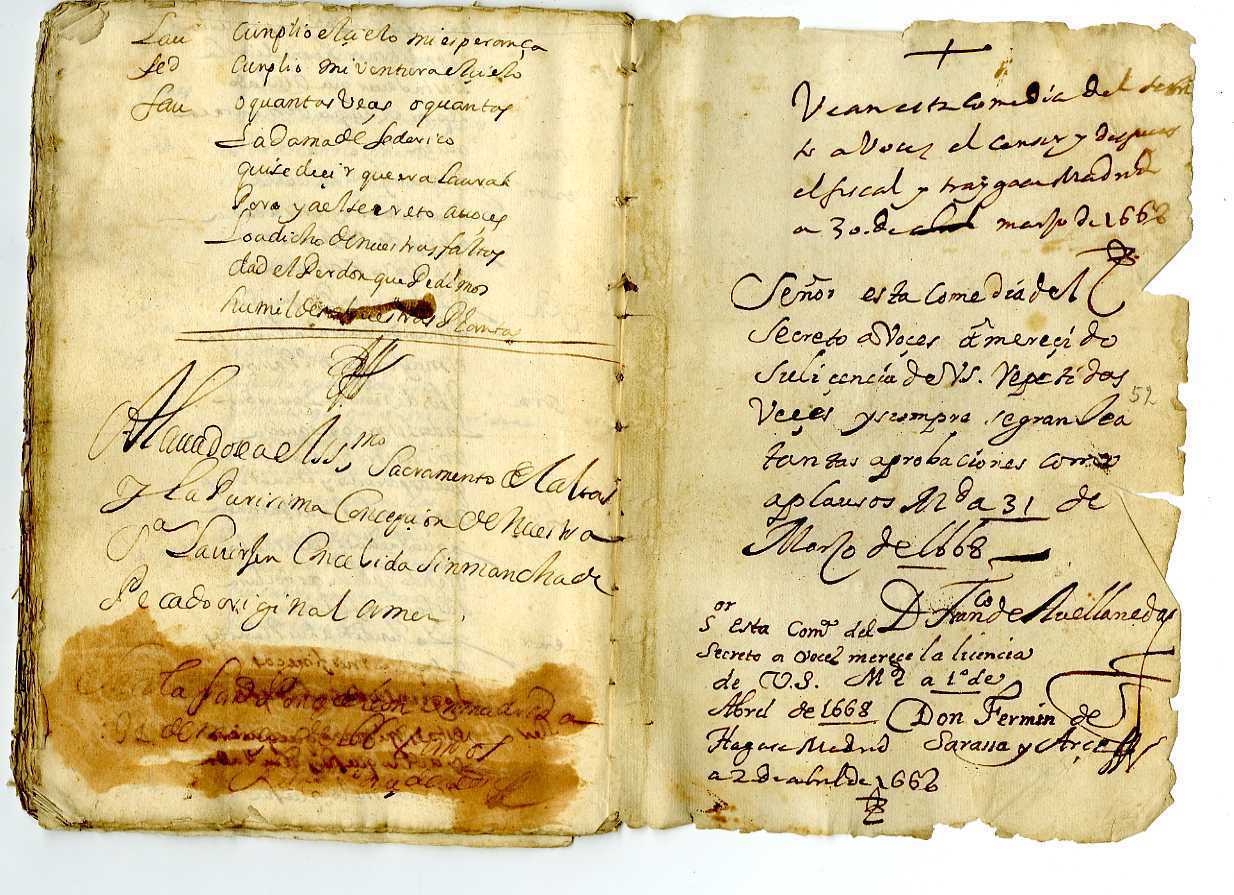 Lau Cunplio el çielo mi esperança
fed Cunplio mi ventura el çielo
Lau o quantas veçes o quantas
La dama de federico
quise decir que era Laura
Pero ya el secreto a voçes
Lo a dicho de nuestras faltas
dad el Perdon que Pedimos
humildes a vuestras Plantas
Alauado sea el SSmo Sacramento del altar
y La Purisima Conçepçion de Nuestra
Sa La virgen Concebida sin mancha de
Pecado original amen
+
Vea esta comedia del secre
to a Voces el censor y despues
el fiscal y traygase Madrid
a 30 de marzo de 1668
Señor esta Comedia del
Secreto a Voçes a mereçido
su licencia de VS. repetidas
Veçes y siempre
tantas aprobaciones como
aplausos Md a 31 de
Marzo de 1668
52
D Franco de Auellaneda
Sor Esta Coma del
Secreto a voces merece la licencia
de V.S. Md a 1º de
Abril de 1668 Don Fermin de
Sarasa y Arçe
Hagase Madrid
a 2 de abril de 1668